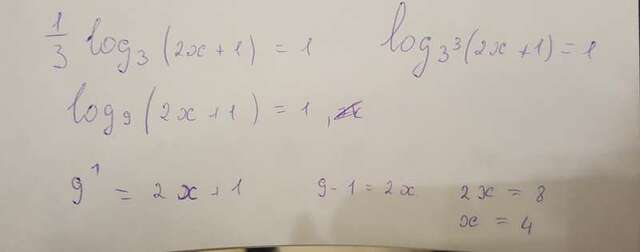 1/3 log₃ (2x+1) = 1 log₃³(2x+1)=1
log₉ (2x+1) = 1,
9¹ = 2x+1 9-1=2x 2x = 8
x = 4